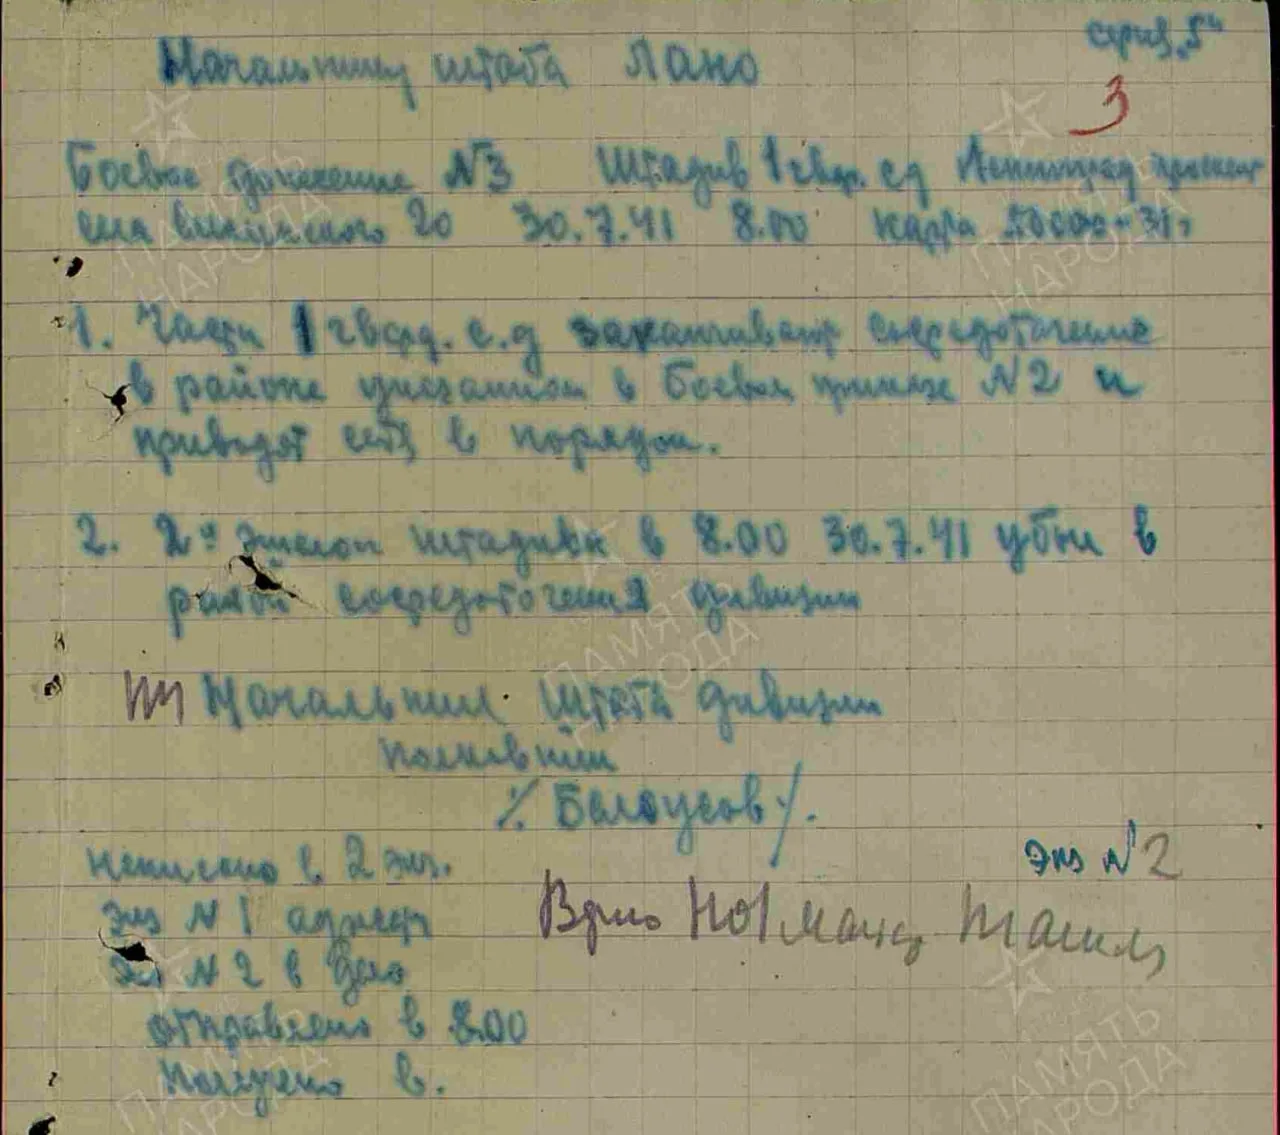 серия "Б"
Начальнику штаба ЛАНО
3
Боевое донесение №3 Штадив 1 гвар. сд Ленинград проспект
20 30.7.41 8.00 карта 50000-31г
1. Части 1 гвард. с.д заканчивают сосредоточение
в районе указанном в боевом приказе №2 и
приводят себя в порядок.
2. 2й эшелон штадива в 8.00 30.7.41 убыл в
район сосредоточения дивизии
Начальник штаба дивизии
полковник
/Белоусов/.
экз №2
написано в 2 экз.
экз №1 адресату
экз №2 в дело
отправлено в 8.00
Получено в.
Верно НО1